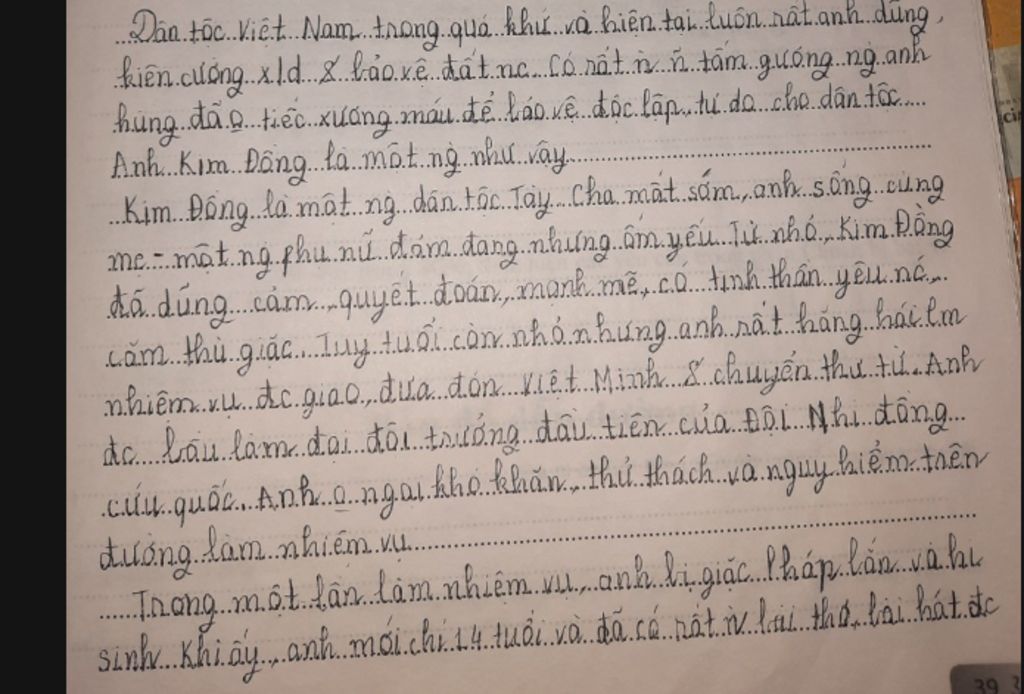 Dân tộc Việt Nam trong quá khứ và hiện tại luôn rất anh dũng,
kiên cường x/d & bảo vệ đất nc. Có rất ǹ ñ tấm gương ng anh
hùng đã o tiếc xương máu để bảo vệ độc lập, tự do cho dân tộc.
Anh Kim Đồng là một ng như vậy.
Kim Đồng là một ng dân tộc Tày. Cha mất sớm, anh sống cùng
mẹ - một ng phụ nữ đảm đang nhưng ốm yếu. Từ nhỏ, Kim Đồng
đã dũng cảm, quyết đoán, mạnh mẽ, có tinh thần yêu nc,
căm thù giặc. Tuy tuổi còn nhỏ nhưng anh rất hăng hái lm
nhiệm vụ đc giao, đưa đón Việt Minh & chuyển thư từ. Anh
đc bầu làm đại đội trưởng đầu tiên của Đội Nhi đồng
cứu quốc. Anh o ngại khó khăn, thử thách và nguy hiểm trên
đường làm nhiệm vụ.
Trong một lần làm nhiệm vụ, anh bị giặc Pháp bắn và hi
sinh. Khi ấy, anh mới chỉ 14 tuổi và đã có rất ǹ bài thơ, bài hát đc
39